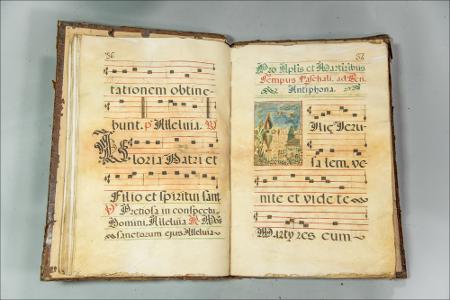 56
tationem obtine-
bunt. Alleluia.
Gloria Patri et
Filio et spiritui san
Pretiosa in conspectu
Domini, Alleluia
sanctorum ejus Alleluia
57
Pro Aplis et Martiribus
Tempus Paschali. ad
Antiphona.
Jeru-
salem, ve-
nite et videte
Martyres cum